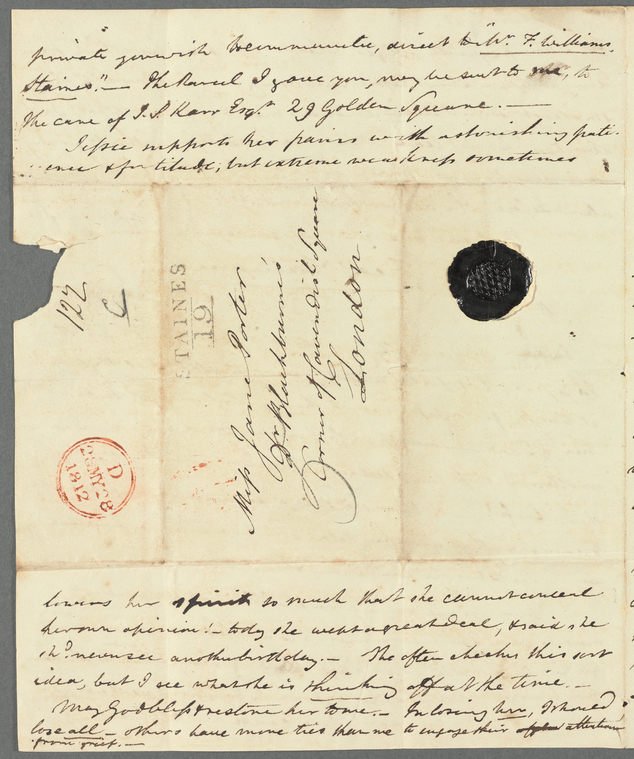 private you wish to communicate, direct to "Mr. F. Williams,
Staines." — The Parcel I gave you, may be sent to me, to
the care of J. S. Kerr Esqr. 29 Golden Square. —
Jessie supports her pains with astonishing pati-
ence & fortitude; but extreme weakness sometimes
122
STAINES
19
Miss Jane Porter
Dr Blackburne's
Corner of Cavendish Square
London
D
28 MY 28
1812
lowers her spirits so much that she cannot conceal
her own opinion! – today she wept a great deal, & said she
shd. never see another birthday. — She often checks this sort
idea, but I see what she is thinking off at the time. —
May God bless & restore her to me. — In losing her, I should
lose all – others have more ties than me to engage their attention
from grief. —